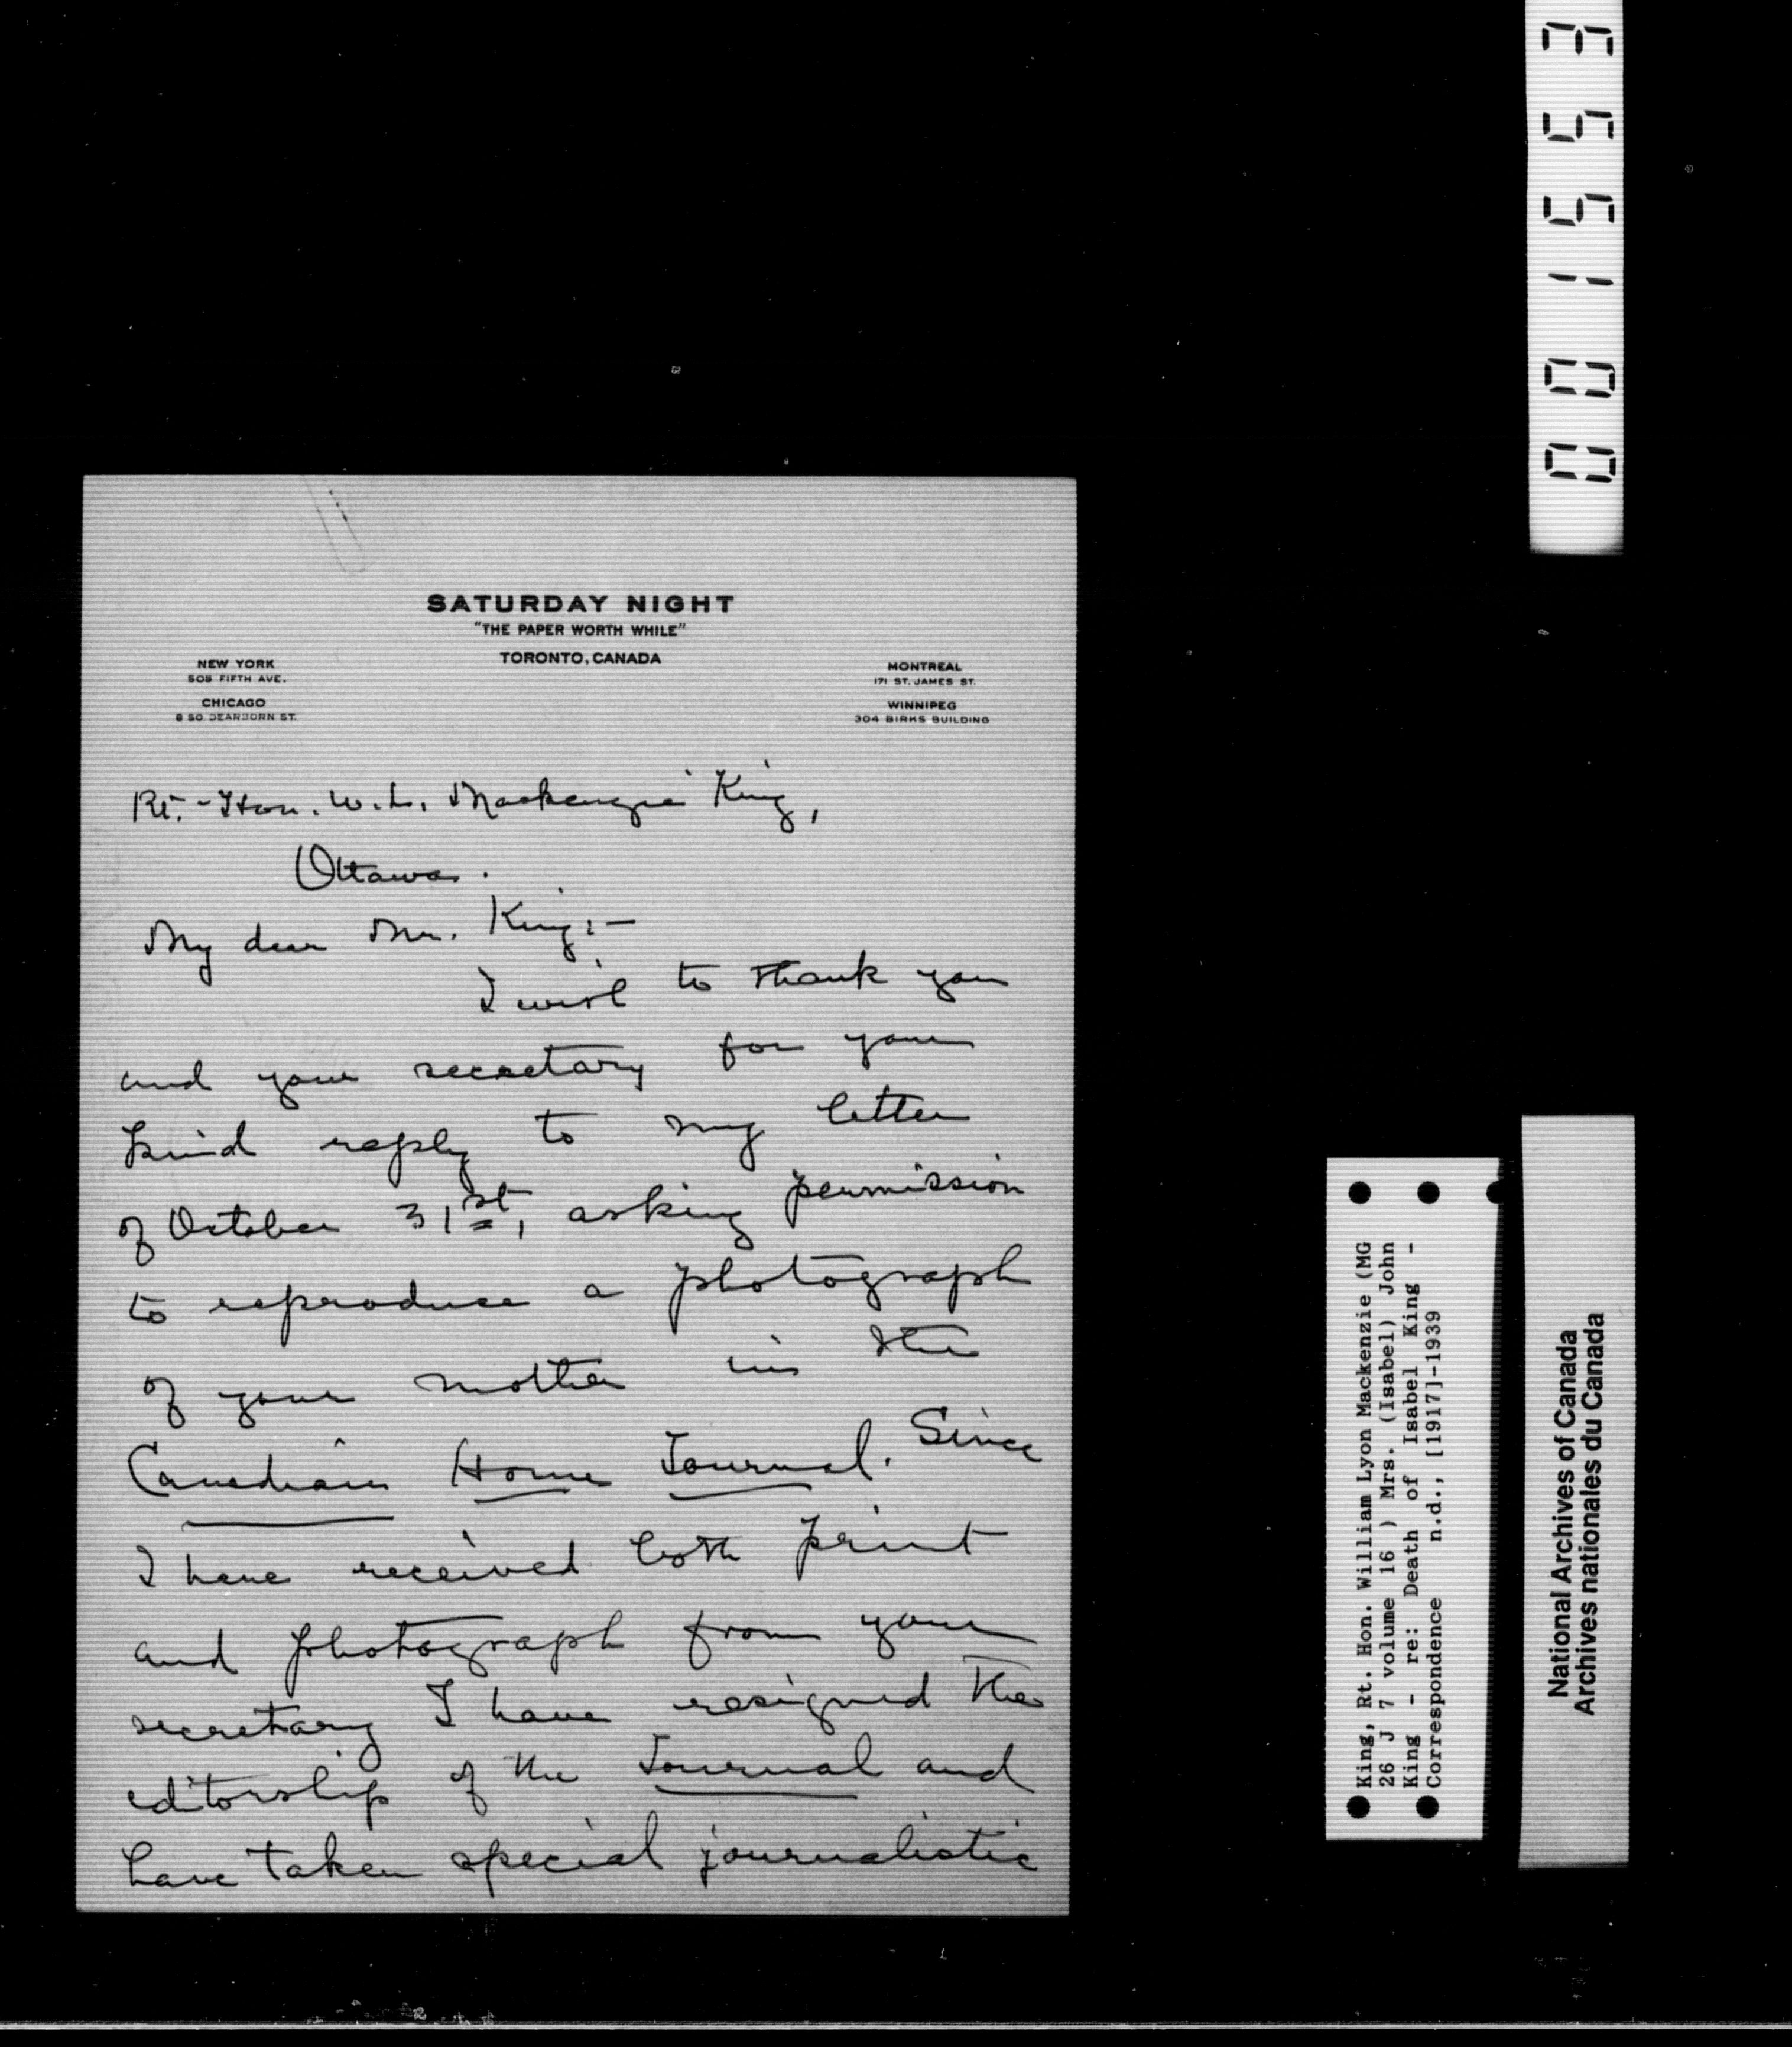 SATURDAY NIGHT
"THE PAPER WORTH WHILE"
TORONTO, CANADA
NEW YORK
505 FIFTH AVE.
CHICAGO
8 SO. DEARBORN ST.
MONTREAL
171 ST. JAMES ST.
WINNIPEG
304 BIRKS BUILDING
Rt.-Hon. W. L. Mackenzie King,
Ottawa.
My dear Mr. King:-
I wish to thank you
and your secretary for your
kind reply to my letter
of October 31st, asking permission
to reproduce a photograph
of your mother in the
Canadian Home Journal. Since
I have received both print
and photograph from your
secretary I have resigned the
editorship of the Journal and
have taken special journalistic
001553
King, Rt. Hon. William Lyon Mackenzie (MG
26 J 7 volume 16 ) Mrs. (Isabel) John
King - re: Death of Isabel King -
Correspondence n.d., [1917]-1939
National Archives of Canada
Archives nationales du Canada